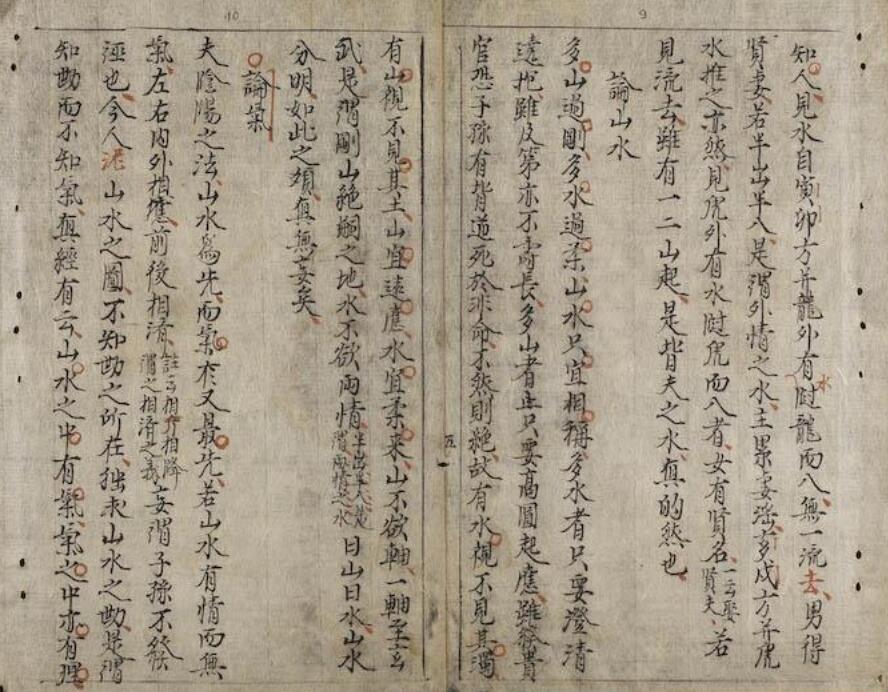 9
知人見水自寅卯方并龍外有水過龍而入無一流去男得
賢妻若半出半入是謂外情之水主累妻婬多戌方并虎
水推之亦然見虎外有水過虎而入者女有賢名一云娶賢夫若
見流去雖有一二山起是皆夫之水真的然也
論山水
多山過剛多水過柔山水只宜相稱多水者只要澄清
遠抱雖及第亦不壽長多山者止只要高圓起應雖發貴
官恐子孫有背道死於非命不然則絶故有水視不見其濁
五
10
有山視不見其土山宜遠應水宜柔來山不欲軸一軸至玄
武是謂剛山絶嗣之地水不欲兩情半出半入是謂兩情之水曰山曰水山水
分明如此之類真無妄矣
論氣
夫陰陽之法山水為先而氣於又最先若山水有情而無
氣左右內外相應前後相濟註云相升相降謂之相濟之義妄謂子孫不發
逕也今人泥山水之圖不知勘之所在拙求山水之勘是謂
知勘而不知氣真經有云山水之中有氣氣之中亦有理